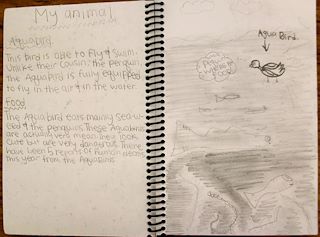 My animal
Aquabird
This bird is able to Fly & Swim.
Unlike their cousin, the penguin,
the Aquabird is fully equipped
to fly in the air & in the water.
Food
The Aqua bird eats mainly Sea-we
ed & the penguins. These Aquabirds
are actually very mean. They look
cute but are very dangrous. There
have been 5 reports of human deaths
this year from the Aquabirds
Aqua Bird